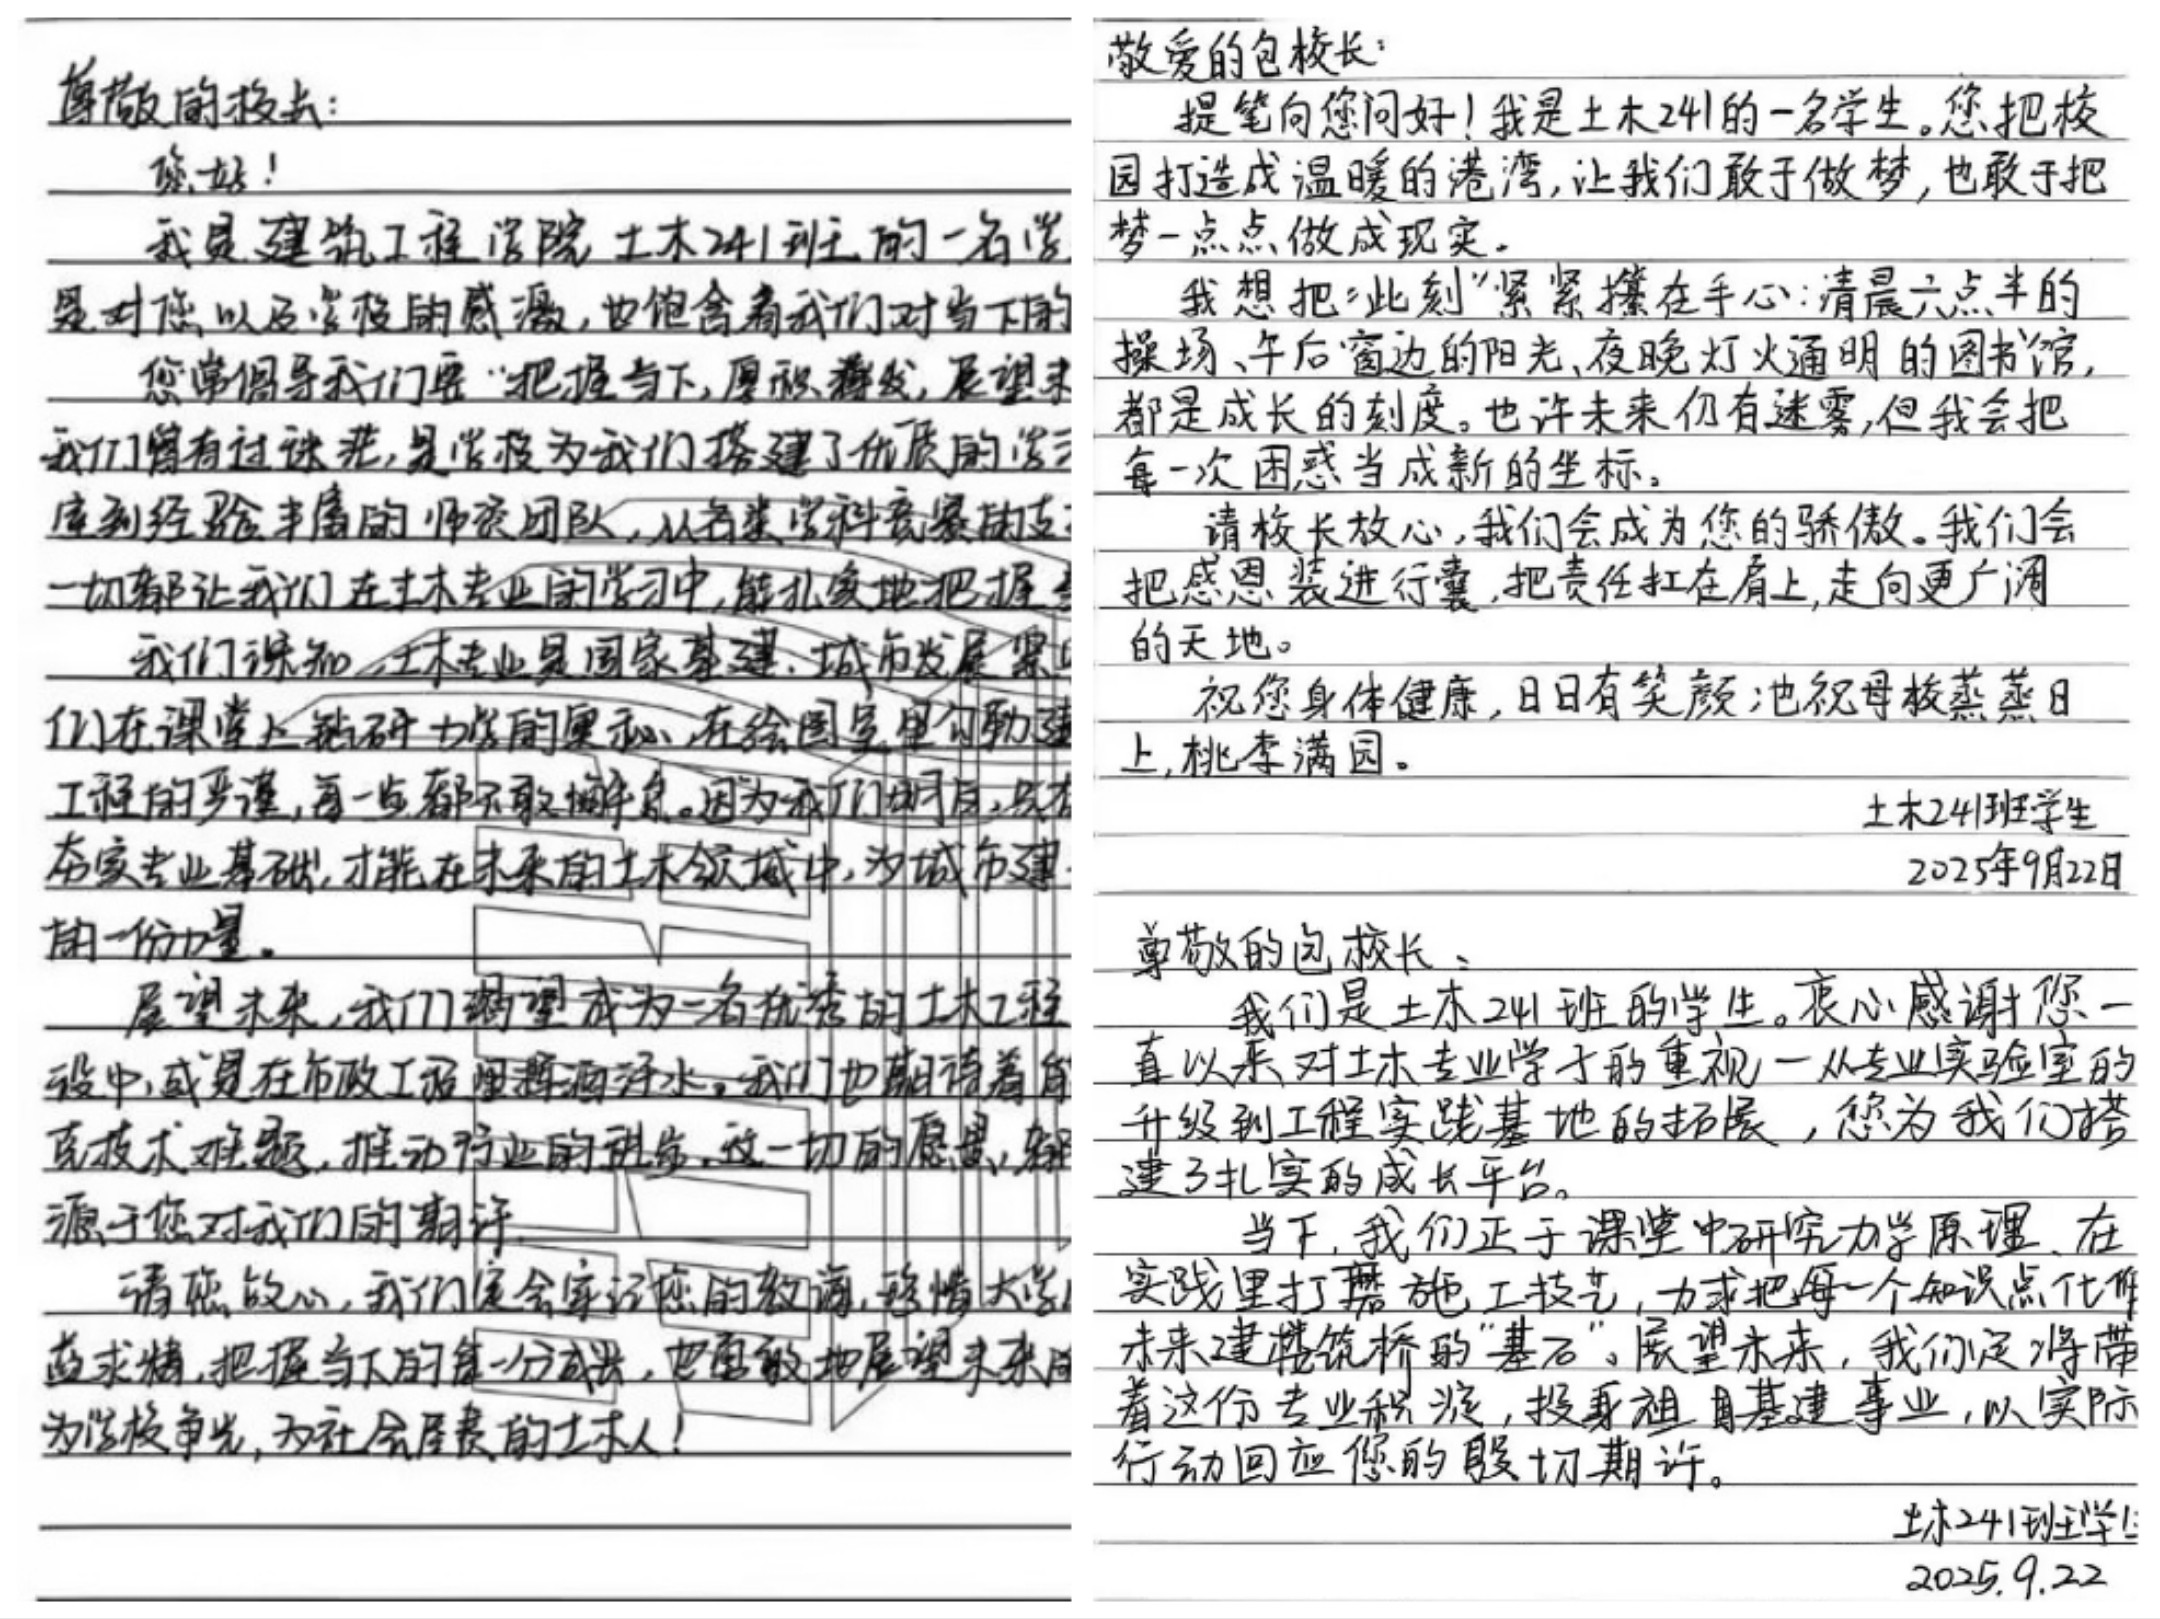 尊敬的校长：
您好！
我是建筑工程学院土木241班的一名学
是对您以及学校的感激，也饱含着我们对当下的
您常倡导我们要“把握当下，厚积薄发，展望未
我们曾有过迷茫，是学校为我们搭建了优质的学习
库到经验丰富的师资团队，从各类学科竞赛的支
一切都让我们在土木专业的学习中，能扎实地把握
我们深知，土木专业是国家基建、城市发展
们在课堂上钻研力学的奥秘，在绘图室里勾勒建
工程的严谨，每一步都不敢懈怠。因为我们明白，只有
夯实专业基础，才能在未来的土木领域中，为城市建
的一份力量。
展望未来，我们渴望成为一名优秀的土木工程
设中，或是在市政工程里挥洒汗水。我们也期待着能
克技术难题，推动行业的进步。这一切的愿景，都
源于您对我们的期许
请您放心，我们定会牢记您的教诲，珍惜大学
益求精，把握当下的每一分成长，也勇敢地展望未来的
为学校争光，为社会尽责的土木人！
敬爱的包校长：
提笔向您问好！我是土木241的一名学生。您把校
园打造成温暖的港湾，让我们敢于做梦，也敢于把
梦一点点做成现实。
我想把“此刻”紧紧攥在手心：清晨六点半的
操场、午后窗边的阳光、夜晚灯火通明的图书馆，
都是成长的刻度。也许未来仍有迷雾，但我会把
每一次困惑当成新的坐标。
请校长放心，我们会成为您的骄傲。我们会
把感恩装进行囊，把责任扛在肩上，走向更广阔
的天地。
祝您身体健康，日日有笑颜；也祝母校蒸蒸日
上，桃李满园。
土木241班学生
2025年9月22日
尊敬的包校长：
我们是土木241班的学生。衷心感谢您一
直以来对土木专业学子的重视—从专业实验室的
升级到工程实践基地的拓展，您为我们搭
建了扎实的成长平台。
当下，我们正于课堂中研究力学原理、在
实践里打磨施工技艺，力求把每一个知识点化作
未来建楼筑桥的“基石”。展望未来，我们定将带
着这份专业积淀，投身祖国基建事业，以实际
行动回应您的殷切期许。
土木241班学生
2025.9.22